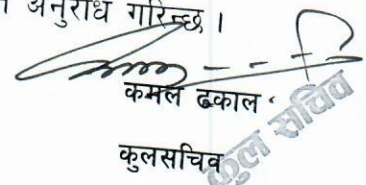 अनुरोध गरिन्छ ।
कमल ढकाल
कुलसचिव
कुल सचिव